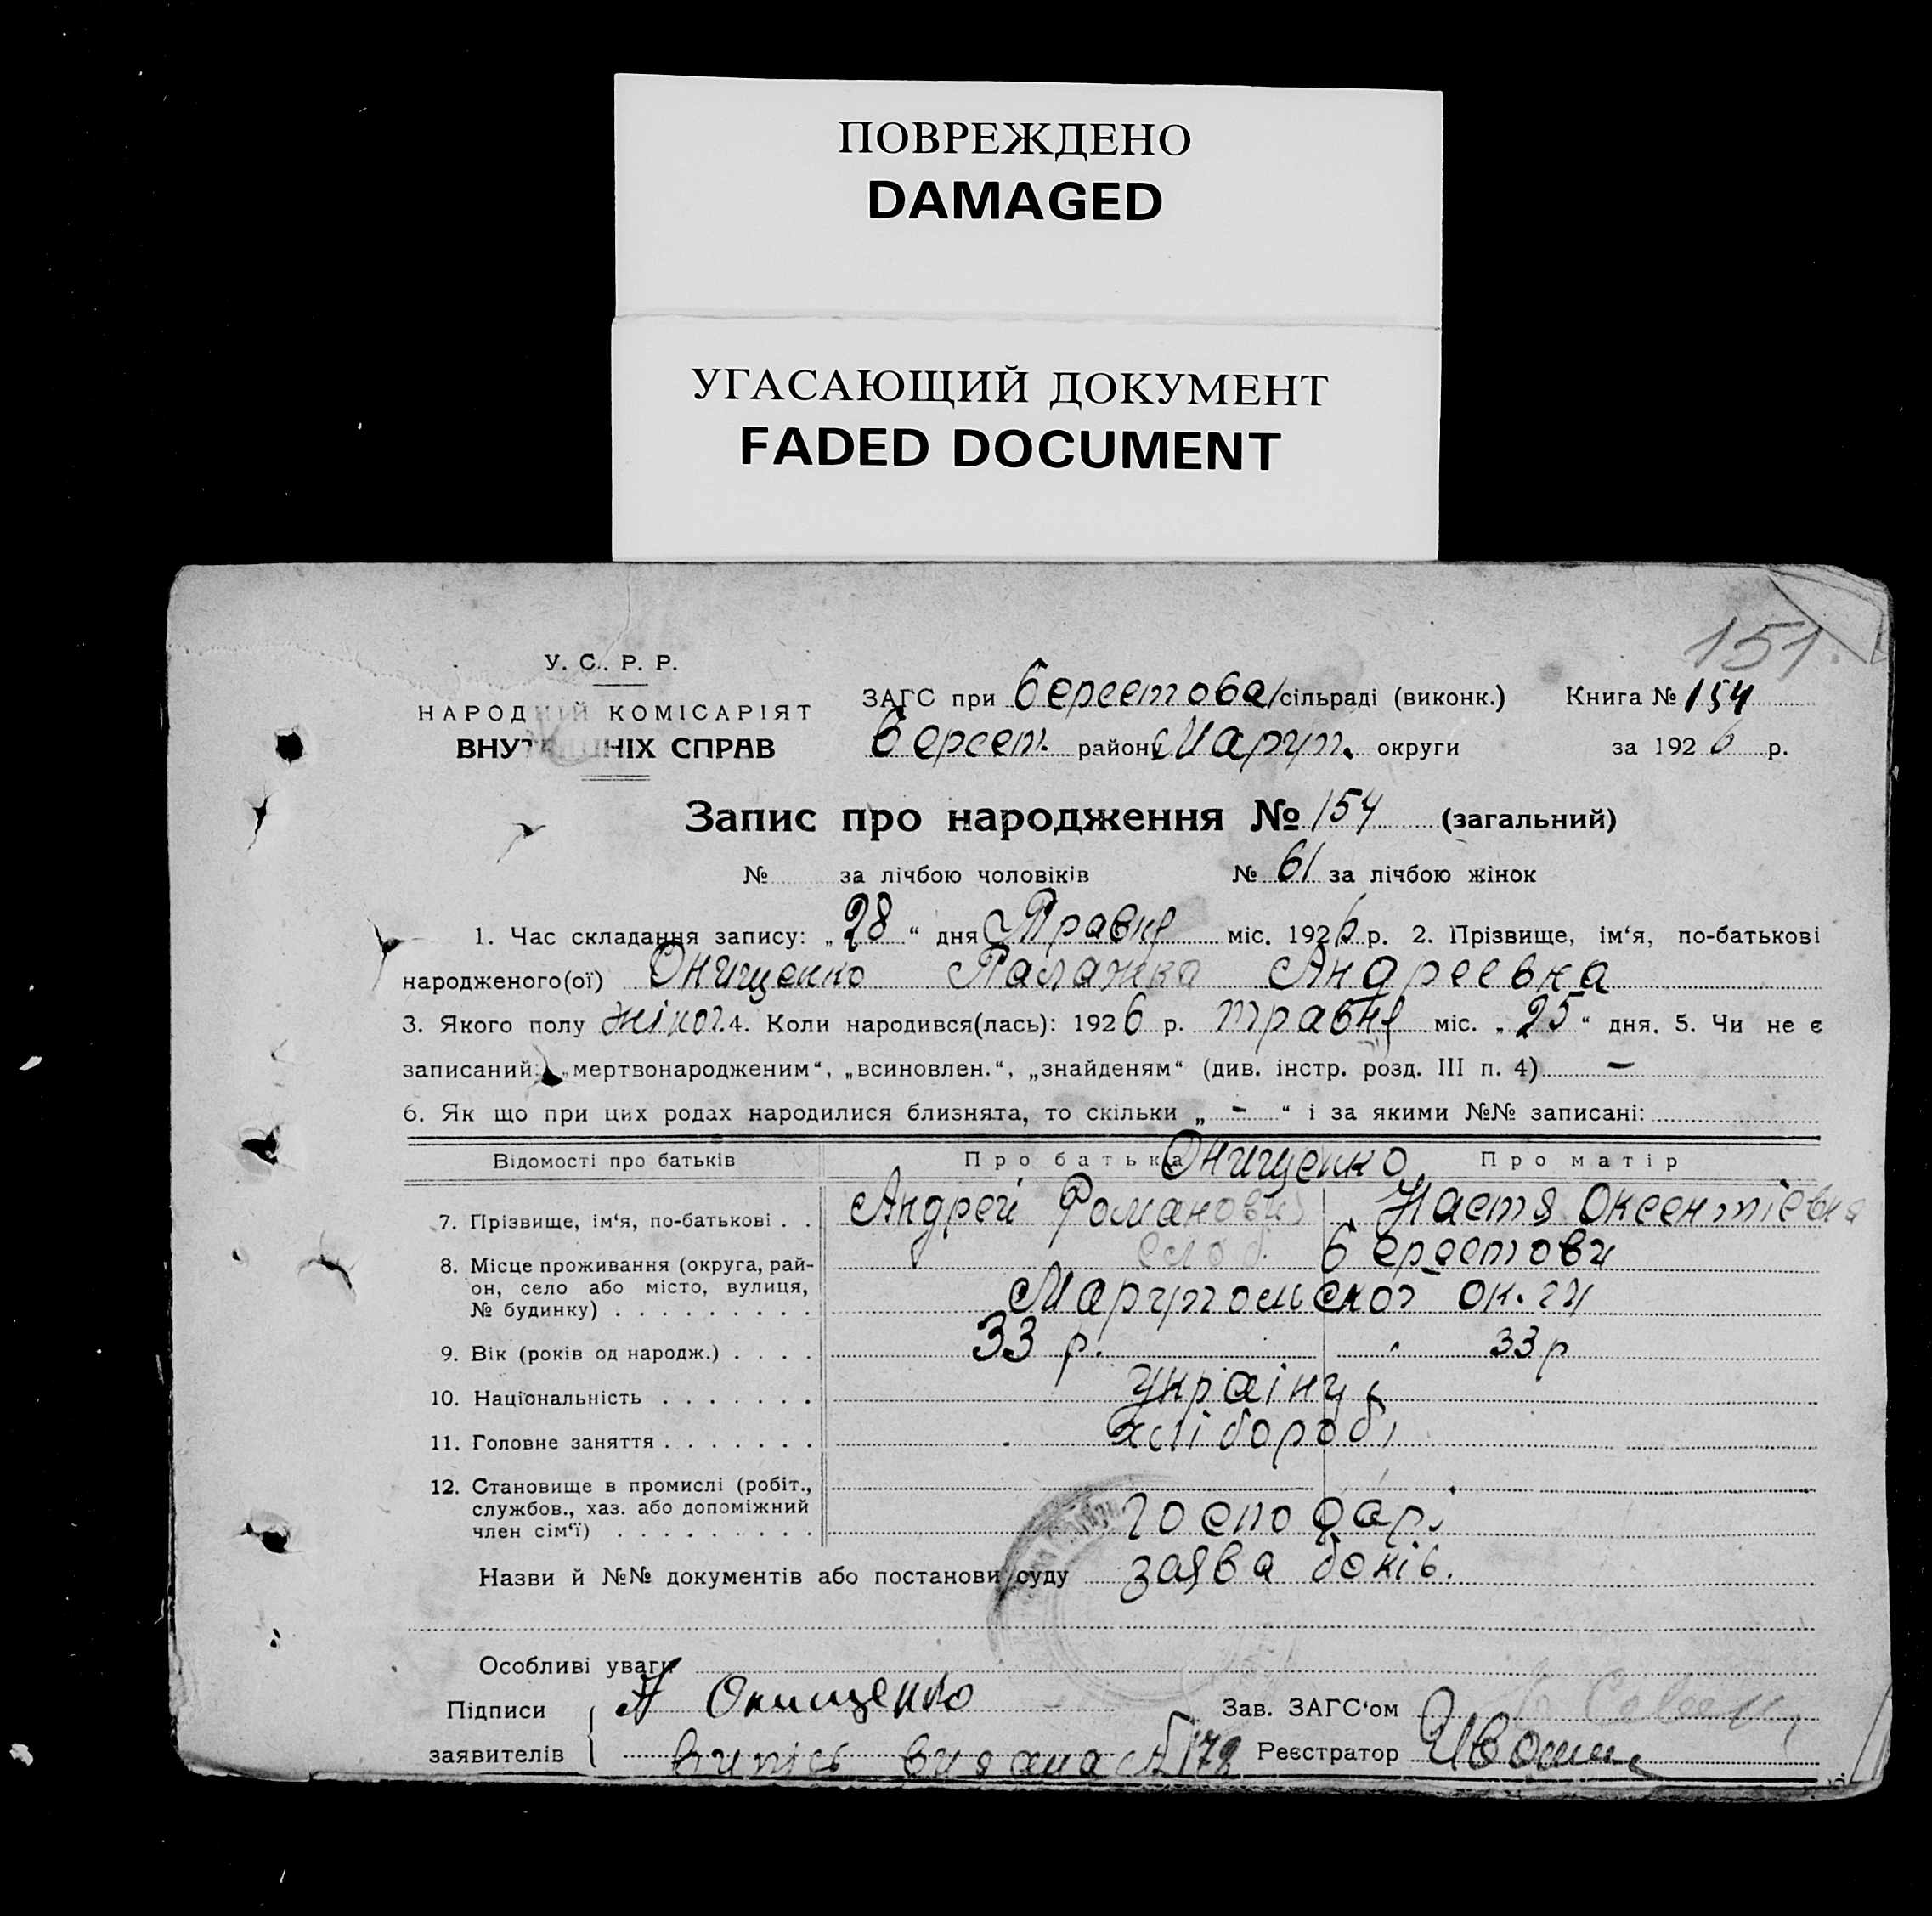 ПОВРЕЖДЕНО
DAMAGED
УГАСАЮЩИЙ ДОКУМЕНТ
FADED DOCUMENT
151
У. С. Р. Р.
НАРОДНІЙ КОМІСАРІЯТ
ВНУТРІШНІХ СПРАВ
ЗАГС при Берестова сільраді (виконк.) Книга № 154
Берест. району Маруп. округи за 1926 р.
Запис про народження № 154 (загальний)
№ за лічбою чоловіків № 61 за лічбою жінок
1. Час складання запису: „28“ дня Травня міс. 1926 р. 2. Прізвище, ім‘я, по-батькові
народженого(ої) Онищенко Палажка Андреевна
3. Якого полу жіноч. 4. Коли народився(лась): 1926 р. травня міс. „25“ дня. 5. Чи не є
записаний: „мертвонародженим“, „всиновлен.“, „знайденям“ (див. інстр. розд. III п. 4) –
6. Як що при цих родах народилися близнята, то скільки „ - “ і за якими №№ записані:
Відомості про батьків Про батька Про матір
Онищенко
7. Прізвище, ім‘я, по-батькові . . Андрей Романович Настя Оксентіевна
8. Місце проживання (округа, рай-
он, село або місто, вулиця,
№ будинку) . . . . . . . . .
слоб. Берестови
Марупольскоі ок.ги
9. Вік (років од народж.) . . . . 33 р. 33 р
10. Національність . . . . . . . украінці
11. Головне заняття . . . . . . . хлібороби
12. Становище в промислі (робіт.,
службов., хаз. або допоміжний
член сім‘ї) . . . . . . . . .
господарі
Назви й №№ документів або постанови суду заява боків.
Особливі уваги
Підписи А Онищенко Зав. ЗАГС‘ом
заявителів випісь видана № 178 Реєстратор